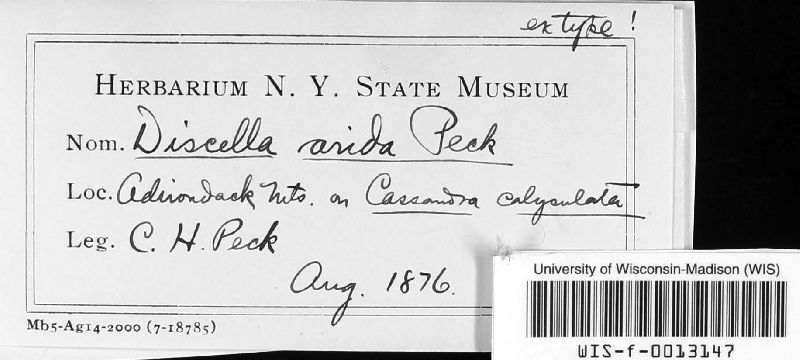 ex type!
HERBARIUM N. Y. STATE MUSEUM
Nom. Discella arida Peck
Loc. Adirondack Mts. on Cassandra calyculata
Leg. C. H. Peck
Aug. 1876.
Mb5-Ag14-2000 (7-18785)
University of Wisconsin-Madison (WIS)
WIS-f-0013147